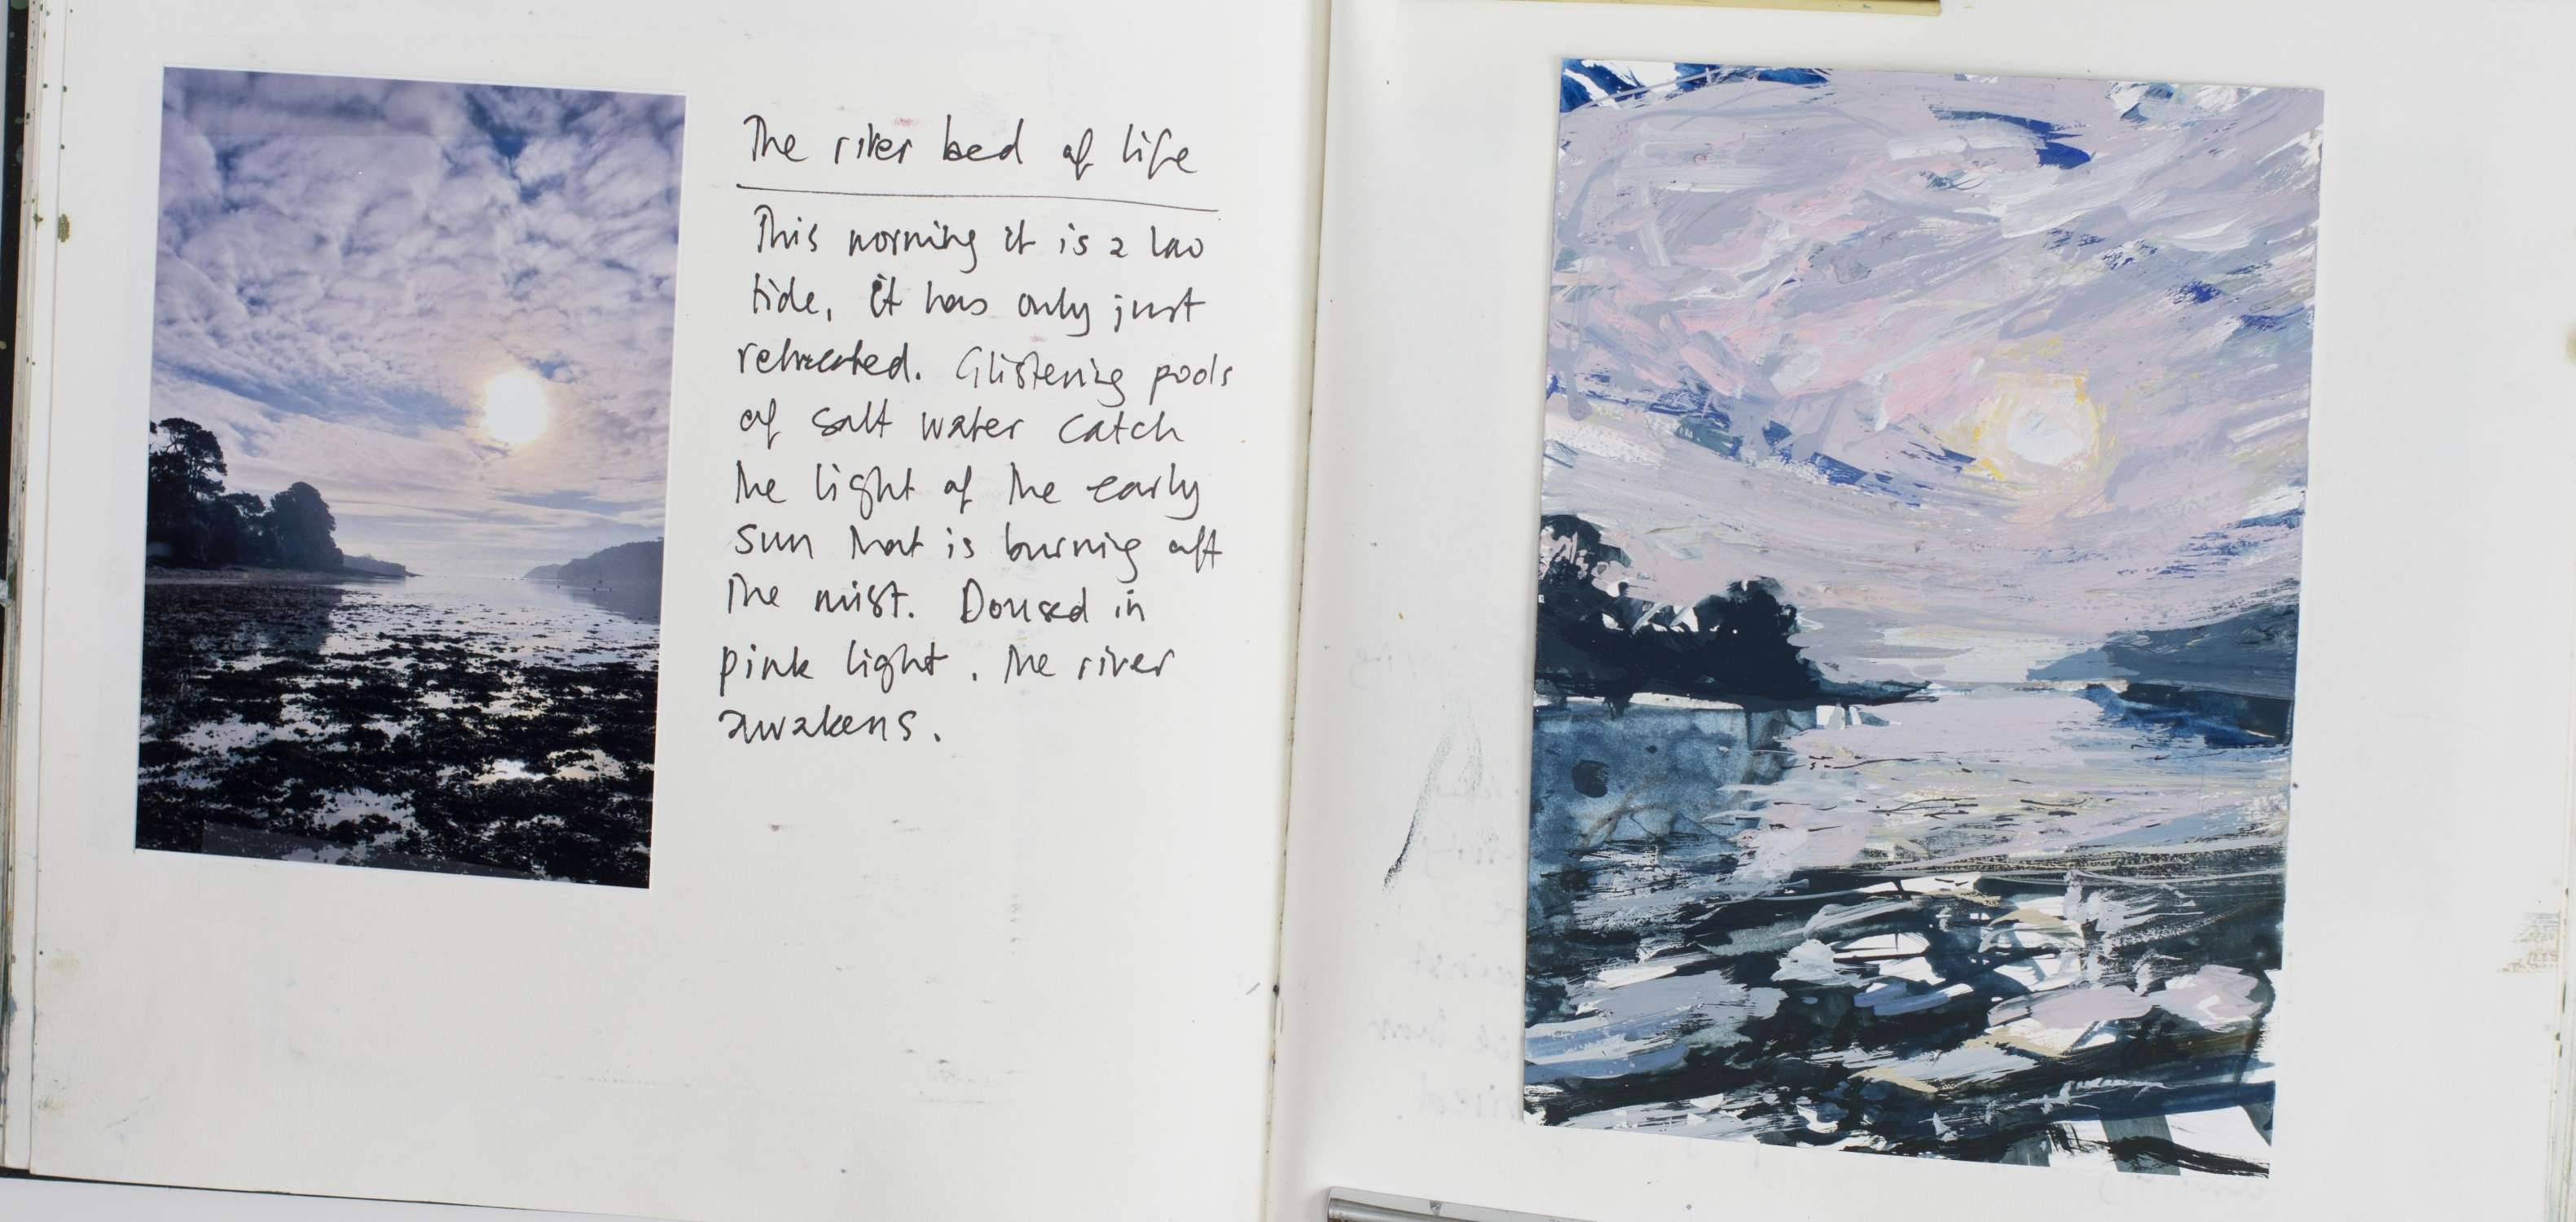 The river bed of life
This morning it is a low
tide, it has only just
retreated. Glistening pools
of salt water catch
the light of the early
sun that is burning off
the mist. Doused in
pink light, the river
awakens.